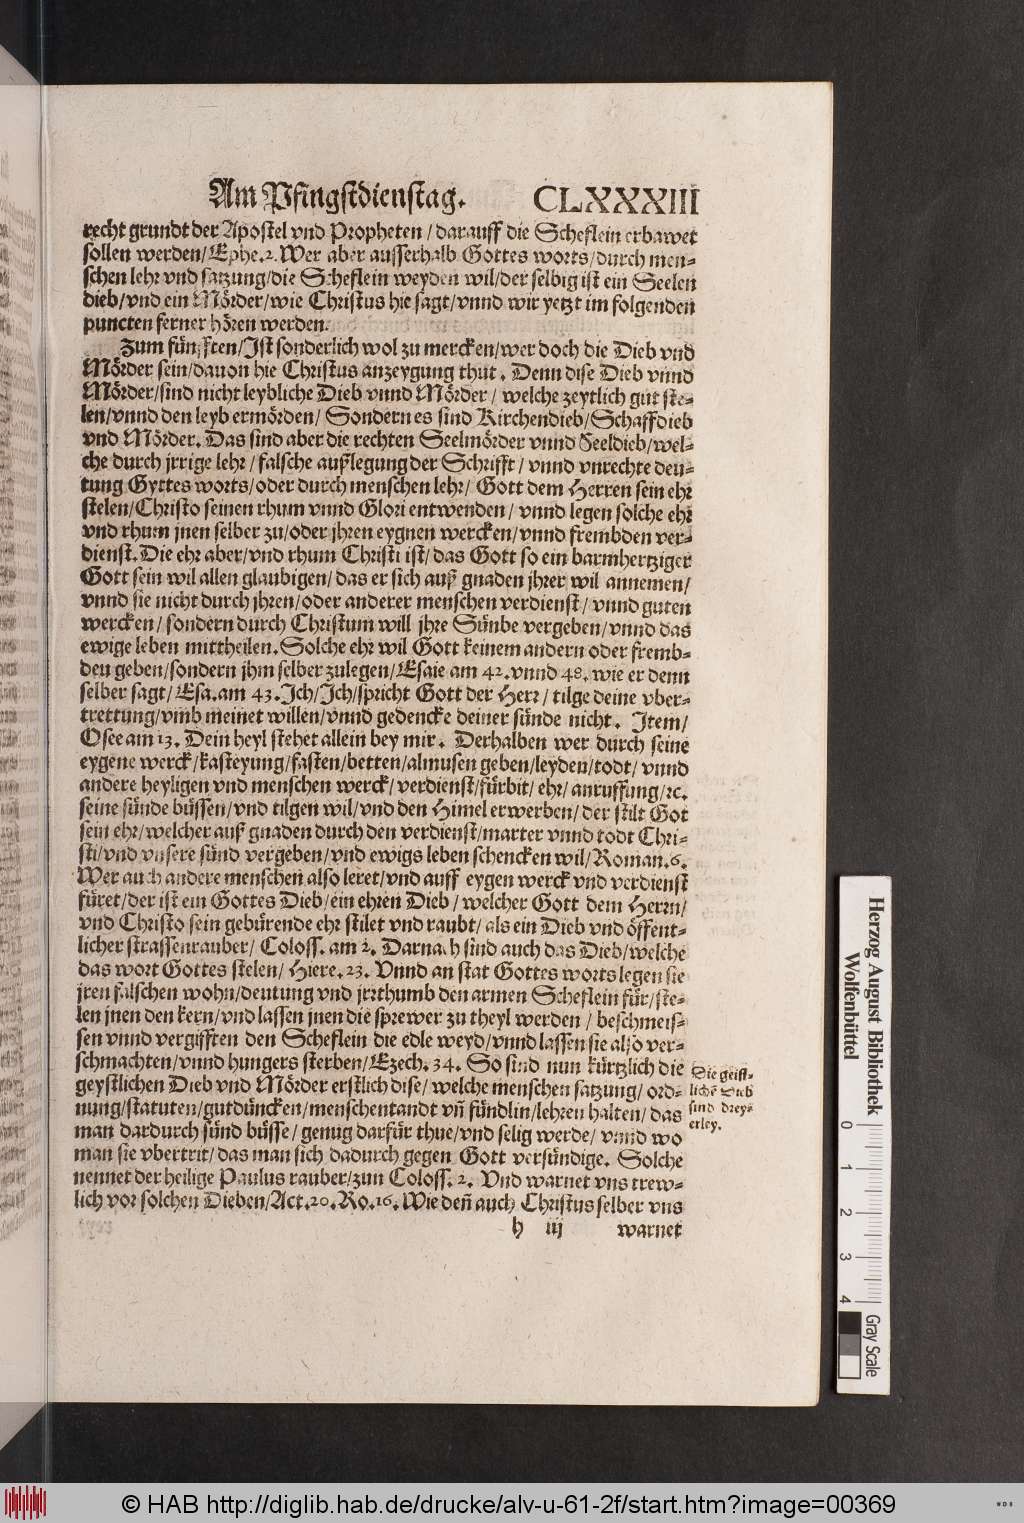 Am Pfingstdienstag. CLXXXIII
recht grundt der Apostel vnd Propheten / darauff die Scheflein erbawet
sollen werden/Ephe.2.Wer aber ausserhalb Gottes worts/durch men⸗
schen lehr vnd satzung/die Scheflein weyden wil/der selbig ist ein Seelen
dieb/vnd ein Mörder/wie Christus hie sagt/vnnd wir yetzt im folgenden
puncten ferner hören werden.
Zum fünfften/Ist sonderlich wol zu mercken/wer doch die Dieb vnd
Mörder sein/dauon hie Christus anzeygung thut. Denn dise Dieb vnnd
Mörder/sind nicht leybliche Dieb vnnd Mörder / welche zeytlich gut ste⸗
len/vnnd den leyb ermörden/ Sondern es sind Kirchendieb/Schaffdieb
vnd Mörder. Das sind aber die rechten Seelmörder vnnd Seeldieb/wel⸗
che durch jrrige lehr/falsche außlegung der Schrifft / vnnd vnrechte deu⸗
tung Gottes worts/oder durch menschen lehr/ Gott dem Herren sein ehr
stelen/Christo seinen rhum vnnd Glori entwenden / vnnd legen solche ehr
vnd rhum jnen selber zu/oder jhren eygnen wercken/vnnd frembden ver⸗
dienst.Die ehr aber/vnd rhum Christi ist/das Gott so ein barmhertziger
Gott sein wil allen glaubigen/das er sich auß gnaden jhrer wil annemen/
vnnd sie nicht durch jhren/oder anderer menschen verdienst/vnnd guten
wercken/sondern durch Christum will jhre Sünbe vergeben/vnnd das
ewige leben mittheilen.Solche ehr wil Gott keinem andern oder fremb⸗
den geben/sondern jhm selber zulegen/Esaie am 42.vnnd 48.wie er denn
selber sagt/Esa.am 43.Ich/Ich/spricht Gott der Herr/tilge deine vber⸗
trettung/vmb meinet willen/vnnd gedencke deiner sünde nicht. Item/
Osee am 13. Dein heyl stehet allein bey mir. Derhalben wer durch seine
eygene werck/kasteyung/fasten/betten/almusen geben/leyden/todt/vnnd
andere heyligen vnd menschen werck/verdienst/fürbit/ehr/anruffung/rc.
seine sünde büssen/vnd tilgen wil/vnd den Himel erwerben/der stilt Got
sein ehr/welcher auß gnaden durch den verdienst/marter vnnd todt Chri⸗
sti/vnd vnsere sünd vergeben/vnd ewigs leben schencken wil/Roman.6.
Wer auch andere menschen also leret/vnd auff eygen werck vnd verdienst
füret/der ist ein Gottes Dieb/ein ehren Dieb / welcher Gott dem Herrn/
vnd Christo sein gebürende ehr stilet vnd raubt/als ein Dieb vnd öffent⸗
licher strassenrauber/ Coloss. am 2. Darnach sind auch das Dieb/welche
das wort Gottes stelen/Hiere.23. Vnnd an stat Gottes worts legen sie
jren falschen wohn/deutung vnd jrrthumb den armen Scheflein für/ste⸗
len jnen den kern/vnd lassen jnen die sprewer zu theyl werden / beschmeis⸗
sen vnnd vergifften den Scheflein die edle weyd/vnnd lassen sie also ver⸗
schmachten/vnnd hungers sterben/Ezech.34. So sind nun kürtzlich die
geystlichen Dieb vnd Mörder erstlich dise/welche menschen satzung/ord⸗
nung/statuten/gutdüncken/menschentandt vñ fündlin/lehren halten/das
man dardurch sünd büsse/genug darfür thue/vnd selig werde/vnnd wo
man sie vbertrit/das man sich dadurch gegen Gott versündige. Solche
nennet der heilige Paulus rauber/zun Coloss.2. Vnd warnet vns trew⸗
lich vor solchen Dieben/Act.20.Ro.16.Wie deñ auch Christus selber vns
h iij warnet
Die geist⸗
lichẽ Dieb
sind drey⸗
erley.
Herzog August Bibliothek
Wolfenbüttel
0 1 2 3 4
Gray Scale
© HAB http://diglib.hab.de/drucke/alv-u-61-2f/start.htm?image=00369